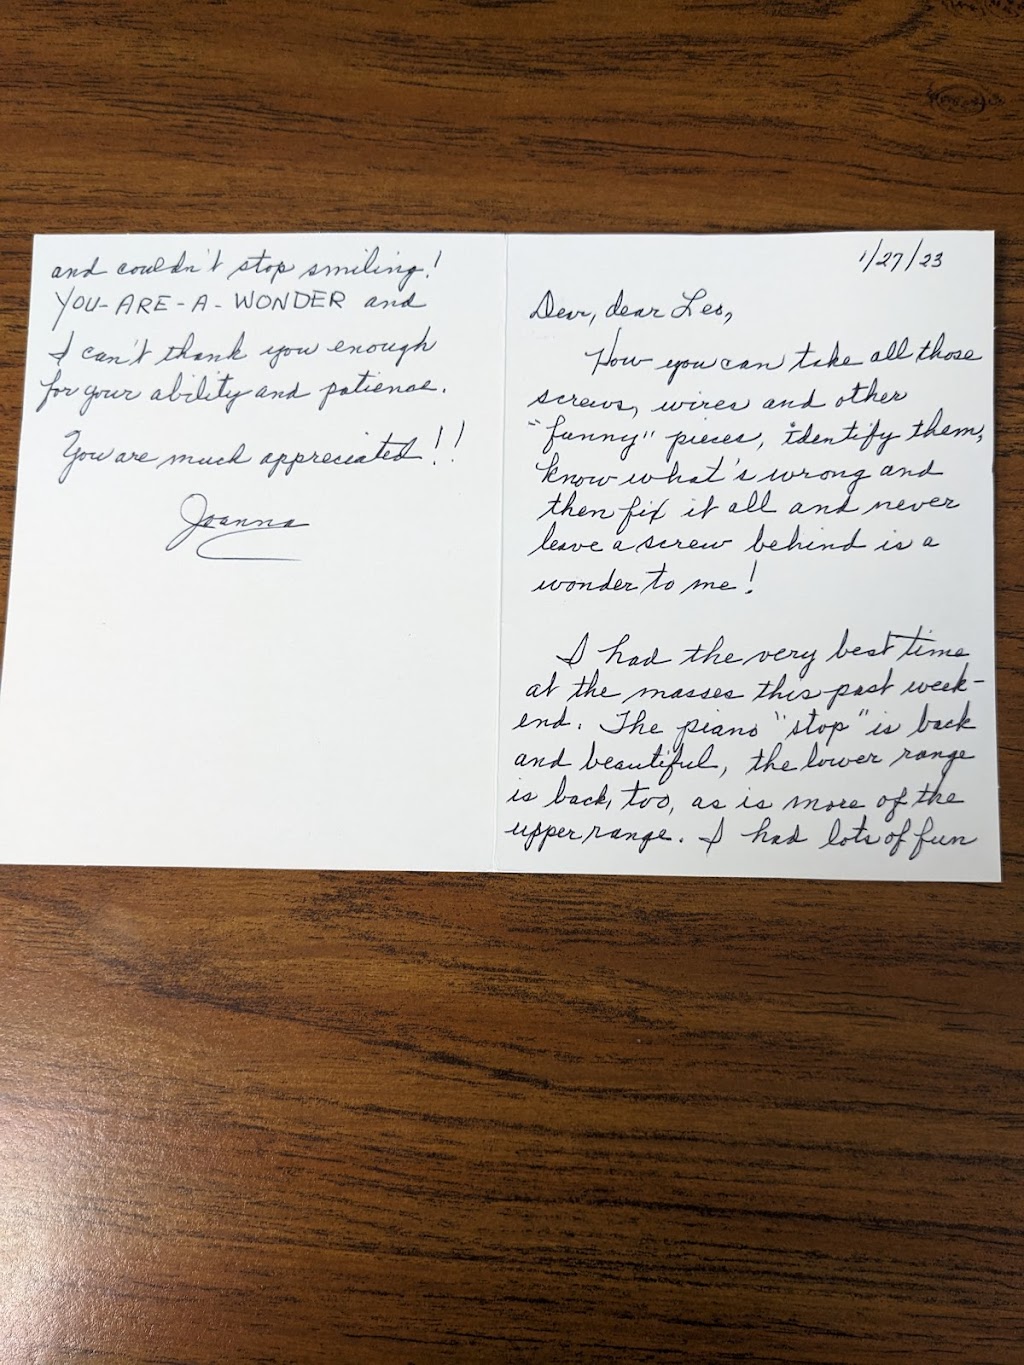 1/27/23
Dear, dear Leo,
How you can take all those
screws, wires and other
"funny" pieces, identify them,
know what's wrong and
then fix it all and never
leave a screw behind is a
wonder to me!
I had the very best time
at the masses this past week-
end. The piano "stop" is back
and beautiful, the lower range
is back, too, as is more of the
upper range. I had lots of fun
and couldn't stop smiling!
YOU-ARE-A-WONDER and
I can't thank you enough
for your ability and patience.
You are much appreciated!!
Joanna